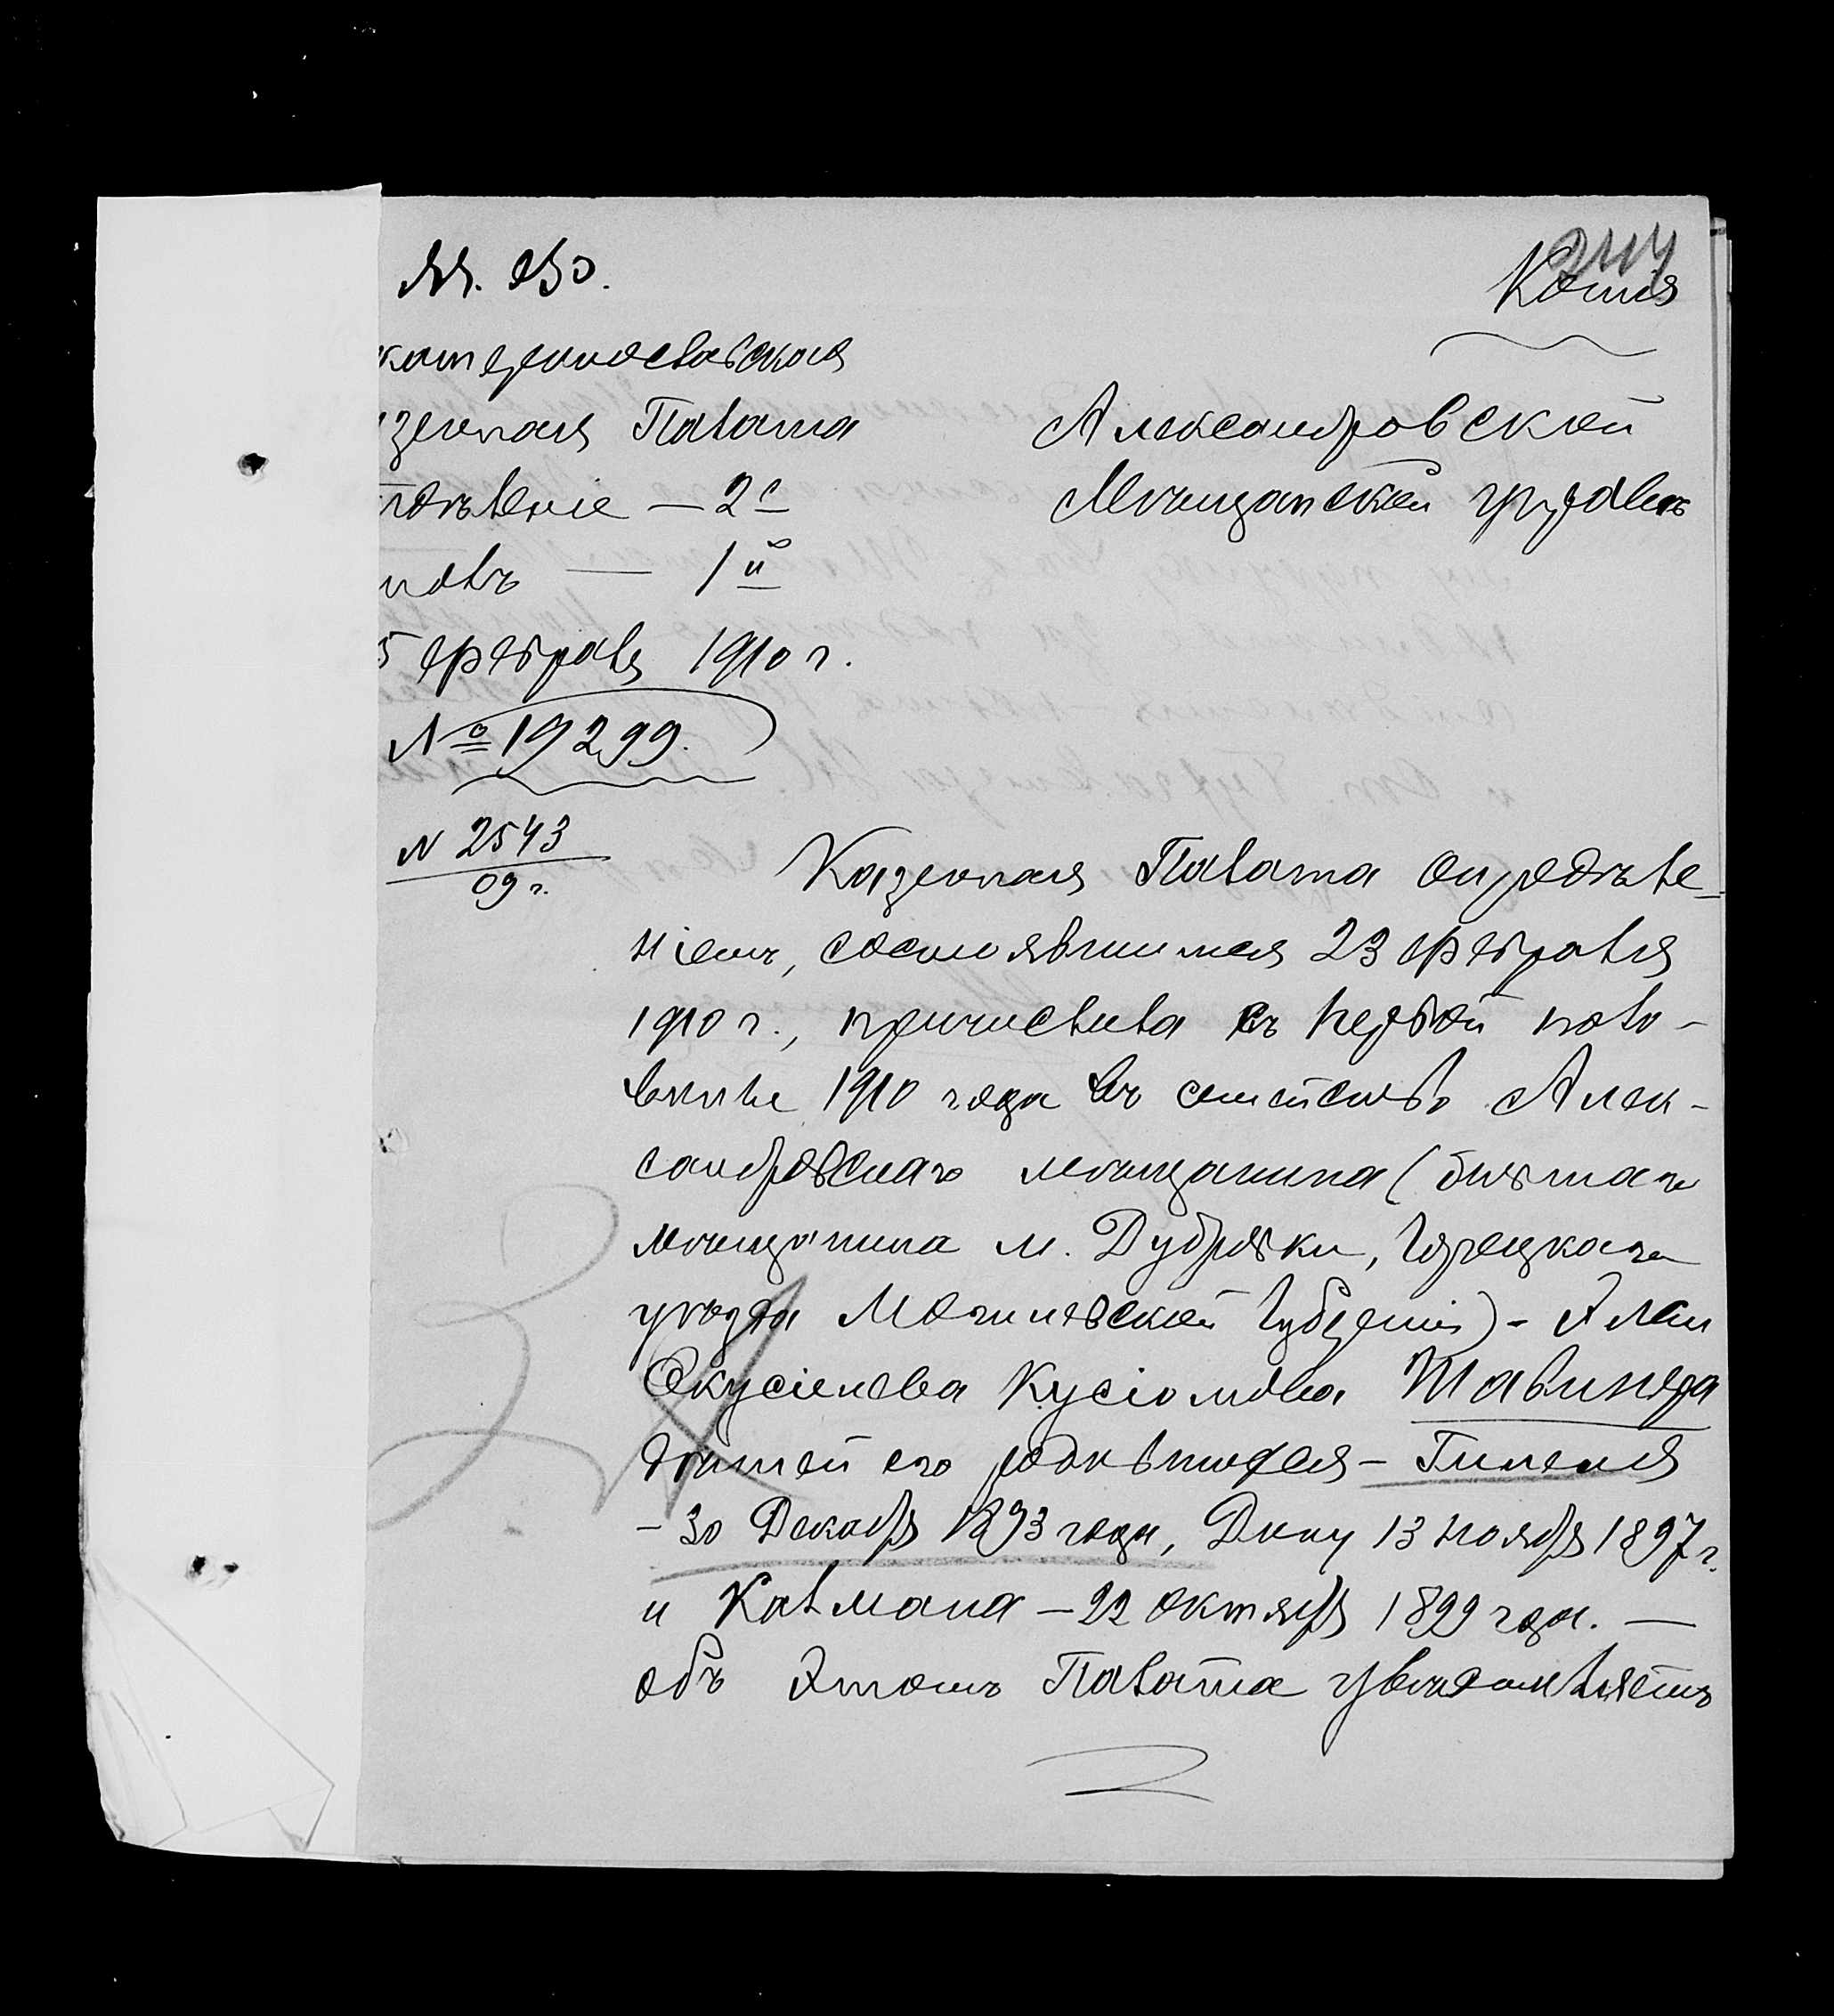 244
Копія
катеринославская
зенная Палата
тдѣленіе — 2е
толъ — 1й
5 февраля 1910 г.
№ 19299.
Александровской
Мѣщанской управѣ
N 2543
09 г.
Казенная Палата опредѣле-
ніемъ, состоявшимся 23 февраля
1910 г., причислила съ первой поло-
вины 1910 года въ семейство Алек-
сандровскаго мѣщанина (бывшаго
мѣщанина м. Дубровки, Горецкаго
уѣзда Могилевской губерніи) -
Екусіелева Кусіолова Шавинера
дѣтей его родившихся — Гилеля
- 30 Декабря 1893 года, Дину 13 ноября 1897 г.
и Калмана — 22 октября 1899 года. —
объ этомъ Палата увѣдомляетъ